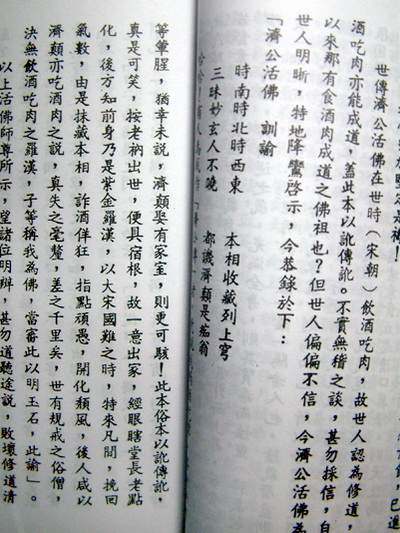 世傳濟公活佛在世時（宋朝）飲酒吃肉，故世人認為修道，
酒吃肉亦能成道，蓋此本以訛傳訛。不實無稽之談，甚勿採信，自
以來那有食酒肉成道之佛祖也？但世人偏偏不信，今濟公活佛為
世人明晰，特地降鸞啓示，今恭錄於下：
「濟公活佛　訓諭
時南時北時西東　本相收藏列上宮
三昧妙玄人不晚　都議濟顛是痴翁
等葷腥，猶幸未說，濟顛娶有家室，則更可駭！此本俗本以訛傳訛，
真是可笑，按老衲出世，便具宿根，故一意出家，經眼瞎堂長老點
化，後方知前身乃是紫金羅漢，以大宋國難之時，特來凡間，挽回
氣數，由是抹藏本相，詐酒佯狂，指點頑愚，開化頹風，後人咸以
濟顛亦吃酒肉之說，真失之毫釐，差之千里矣，世有規戒之俗僧，
決無飲酒吃肉之羅漢，子等稱我為佛，當審此以明玉石，此諭」。
以上活佛師尊所示，望諸位明辨，甚勿道聽途說，敗壞修道清